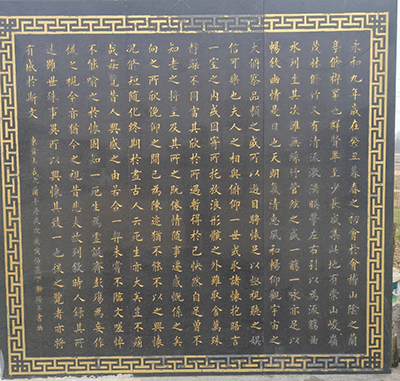 永和九年歲在癸丑暮春之初會於會稽山陰之蘭
亭脩禊事也群賢畢至少長咸集此地有崇山峻嶺
茂林脩竹又有清流激湍暎帶左右引以為流觴曲
水列坐其次雖無絲竹管弦之盛一觴一詠亦足以
暢敘幽情是日也天朗氣清惠風和暢仰觀宇宙之
大俯察品類之盛所以遊目騁懷足以極視聽之娛
信可樂也夫人之相與俯仰一世或取諸懷抱晤言
一室之內或因寄所託放浪形骸之外雖取舍萬殊
靜躁不同當其欣於所遇暫得於己快然自足曾不
知老之將至及其所之既惓情隨事遷感慨係之矣
向之所欣俛仰之間已為陳迹猶不能不以之興懷
況脩短隨化終期於盡古人云死生亦大矣豈不痛
哉每覽昔人興感之由若合一契未嘗不臨文嗟悼
不能喻之於懷固知一死生為虛誕齊彭殤為妄作
後之視今亦猶今之視昔悲夫故列敘時人錄其所
述雖世殊事異所以興懷其致一也後之覽者亦將
有感於斯文